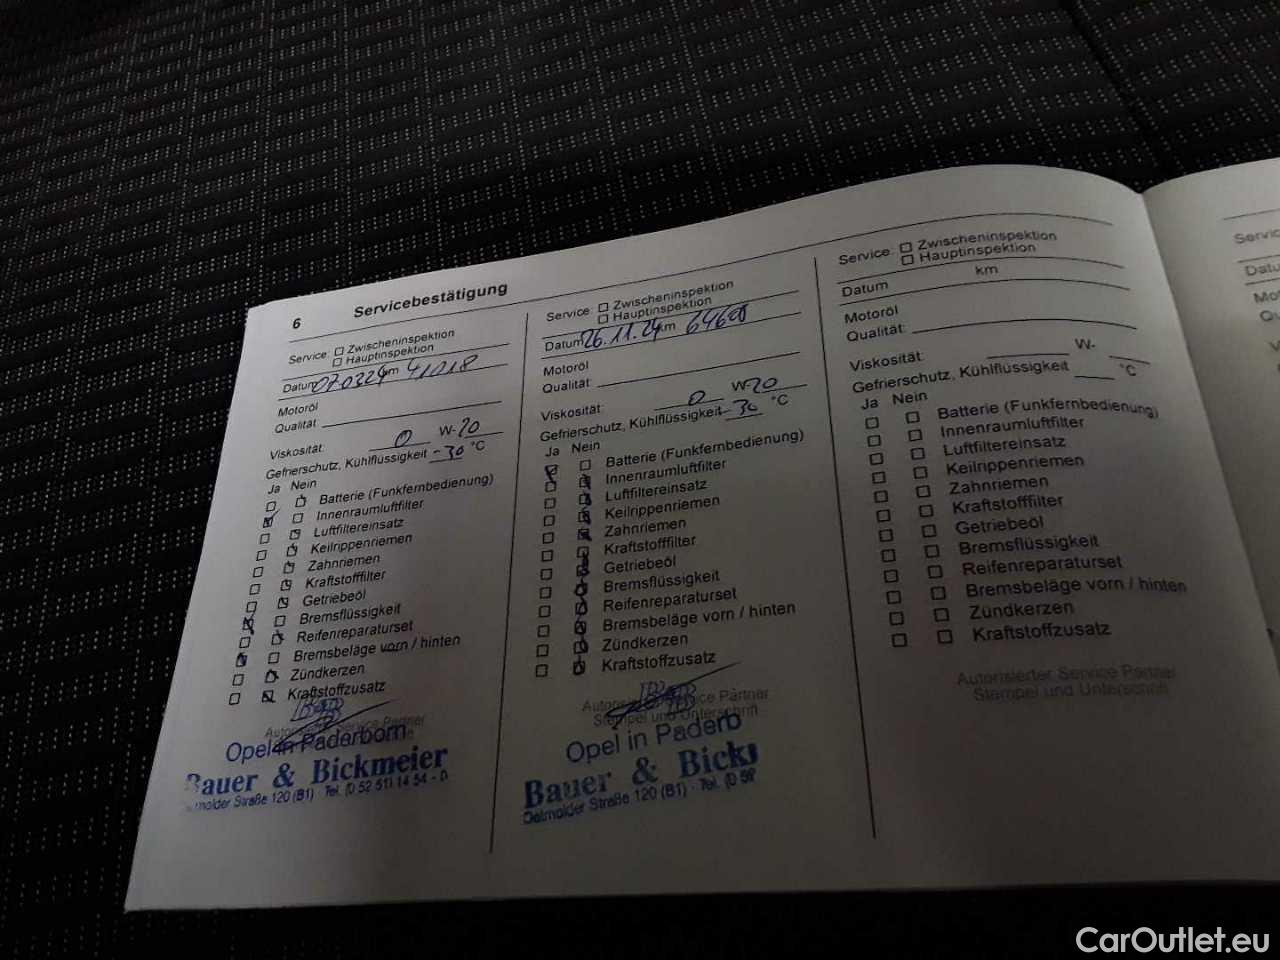 6 Servicebestätigung
Service: Zwischeninspektion
Hauptinspektion
Datum 07.03.24 km 41018
Motoröl
Qualität:
Viskosität: 0 W-20
Gefrierschutz, Kühlflüssigkeit -30 °C
Ja Nein
Batterie (Funkfernbedienung)
Innenraumluftfilter
Luftfiltereinsatz
Keilrippenriemen
Zahnriemen
Kraftstofffilter
Getriebeöl
Bremsflüssigkeit
Reifenreparaturset
Bremsbeläge vorn / hinten
Zündkerzen
Kraftstoffzusatz
Service Partner
Opel in Paderborn
Bauer & Bickmeier
Straße 120 (B1) · Tel. (0 52 51) 14 54 - 0
Service: Zwischeninspektion
Hauptinspektion
Datum 26.11.24 km
Motoröl
Qualität:
Viskosität: 0 W-20
Gefrierschutz, Kühlflüssigkeit -30 °C
Ja Nein
Batterie (Funkfernbedienung)
Innenraumluftfilter
Luftfiltereinsatz
Keilrippenriemen
Zahnriemen
Kraftstofffilter
Getriebeöl
Bremsflüssigkeit
Reifenreparaturset
Bremsbeläge vorn / hinten
Zündkerzen
Kraftstoffzusatz
Service Partner
Stempel und Unterschrift
Opel in Paderb
Bauer & Bick
Detmolder Straße 120 (B1) · Tel. (0 5
Service: Zwischeninspektion
Hauptinspektion
Datum km
Motoröl
Qualität:
Viskosität: W-
Gefrierschutz, Kühlflüssigkeit °C
Ja Nein
Batterie (Funkfernbedienung)
Innenraumluftfilter
Luftfiltereinsatz
Keilrippenriemen
Zahnriemen
Kraftstofffilter
Getriebeöl
Bremsflüssigkeit
Reifenreparaturset
Bremsbeläge vorn / hinten
Zündkerzen
Kraftstoffzusatz
Autorisierter Service Partner
Stempel und Unterschrift
Servic
Datu
Mo
Qu
CarOutlet.eu